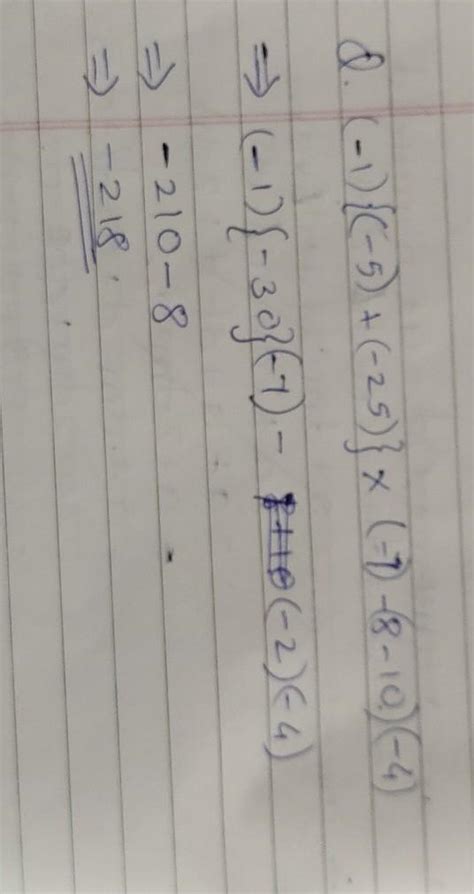 Q. (-1){(-5)+(-25)} × (-7)-(8-10)(-4)
⇒ (-1){-30}(-7) - (-2)(-4)
⇒ -210-8
⇒ -218